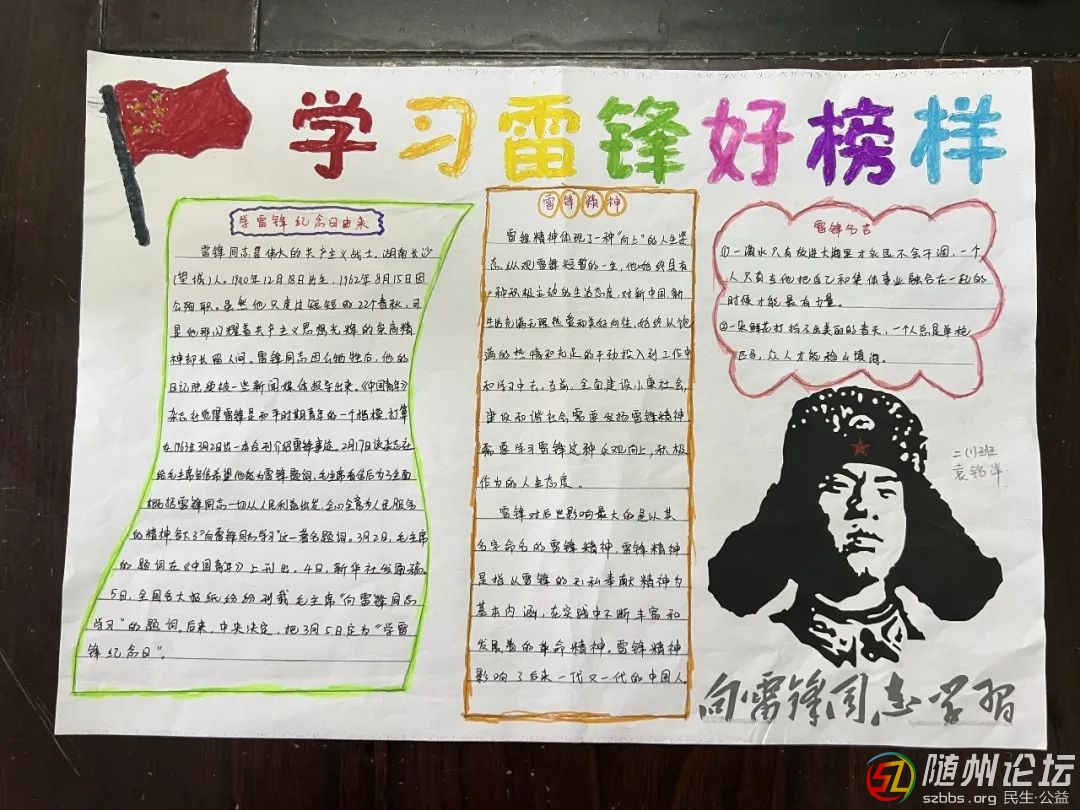 学习雷锋好榜样
学雷锋纪念日由来
雷锋同志是伟大的共产主义战士,湖南长沙
(望城)人。1940年12月18日出生,1962年8月15日因
公殉职。虽然他只度过短短的22个春秋,可
是他那闪耀着共产主义思想光辉的崇高精
神却长留人间。雷锋同志因公牺牲后,他的
日记陆续被一些新闻媒体报导出来。《中国青年》
杂志社觉得雷锋是和平时期青年的一个楷模,打算
在1963年3月2日出一本合刊介绍雷锋事迹。2月17日该杂志社
给毛主席写信希望他能为雷锋题词,毛主席看信后为了全面
概括雷锋同志一切从人民利益出发,全心全意为人民服务
的精神写下了"向雷锋同志学习"这一著名题词。3月2日,毛主席
的题词在《中国青年》上刊出。4日,新华社发通稿。
5日,全国各大报纸纷纷刊载毛主席"向雷锋同志
学习"的题词。后来,中央决定,把3月5日定为"学雷
锋纪念日"。
雷锋精神
雷锋精神体现了一种"向上"的人生姿
态。纵观雷锋短暂的一生,他始终具有
一种积极主动的生活态度,对新中国、新
生活充满无限热爱和美好向往,始终以饱
满的热情和充足的干劲投入到工作中
和学习中去。当前,全面建设小康社会,
建设和谐社会,需要发扬雷锋精神
需要学习雷锋这种乐观向上,积极
作为的人生态度。
雷锋对后世影响最大的是以其
名字命名的雷锋精神,雷锋精神
是指以雷锋的无私奉献精神为
基本内涵,在实践中不断丰富和
发展着的革命精神。雷锋精神
影响了后来一代又一代的中国人
雷锋名言
①一滴水只有放进大海里才永远不会干涸,一个
人只有当他把自己和集体事业融合在一起的
时候才能最有力量。
②一朵鲜花打扮不出美丽的春天,一个人总是单枪
匹马,众人才能移山填海。
二(1)班
向雷锋同志学习
随州论坛
szbbs.org 民生·公益